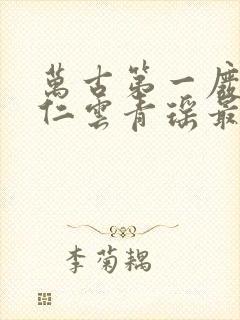 萬古第一
仁雲青瑤最
李菊耦